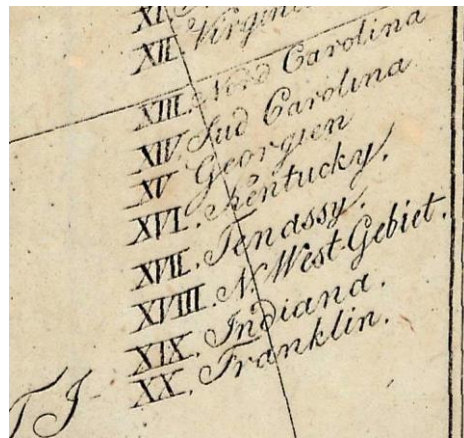 XII. Virginien
XIII. Nord Carolina
XIV. Sud Carolina
XV. Georgien
XVI. Kentucky.
XVII. Tenassy.
XVIII. N. West Gebiet.
XIX. Indiana.
XX. Franklin.